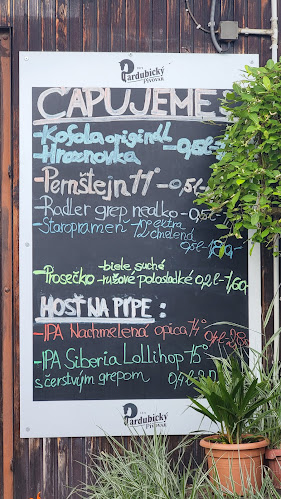 Pardubický
PIVOVAR
ČAPUJEME:
-Kofola originál
-Hroznovka -0,5l-
-Pernštejn 11° -0,5l-
-Radler grep nealko -0,5l-
-Staropramen -10° extra
12° chmelená
0,5l-
-Prosečko -biele suché
-ružové polosladké 0,2l-1,60
HOSŤ NA PÍPE:
-IPA Nachmelená opica 14° 0,4l
-IPA Siberia Lollihop 15°
s čerstvým grepom 0,4l
Pardubický
PIVOVAR